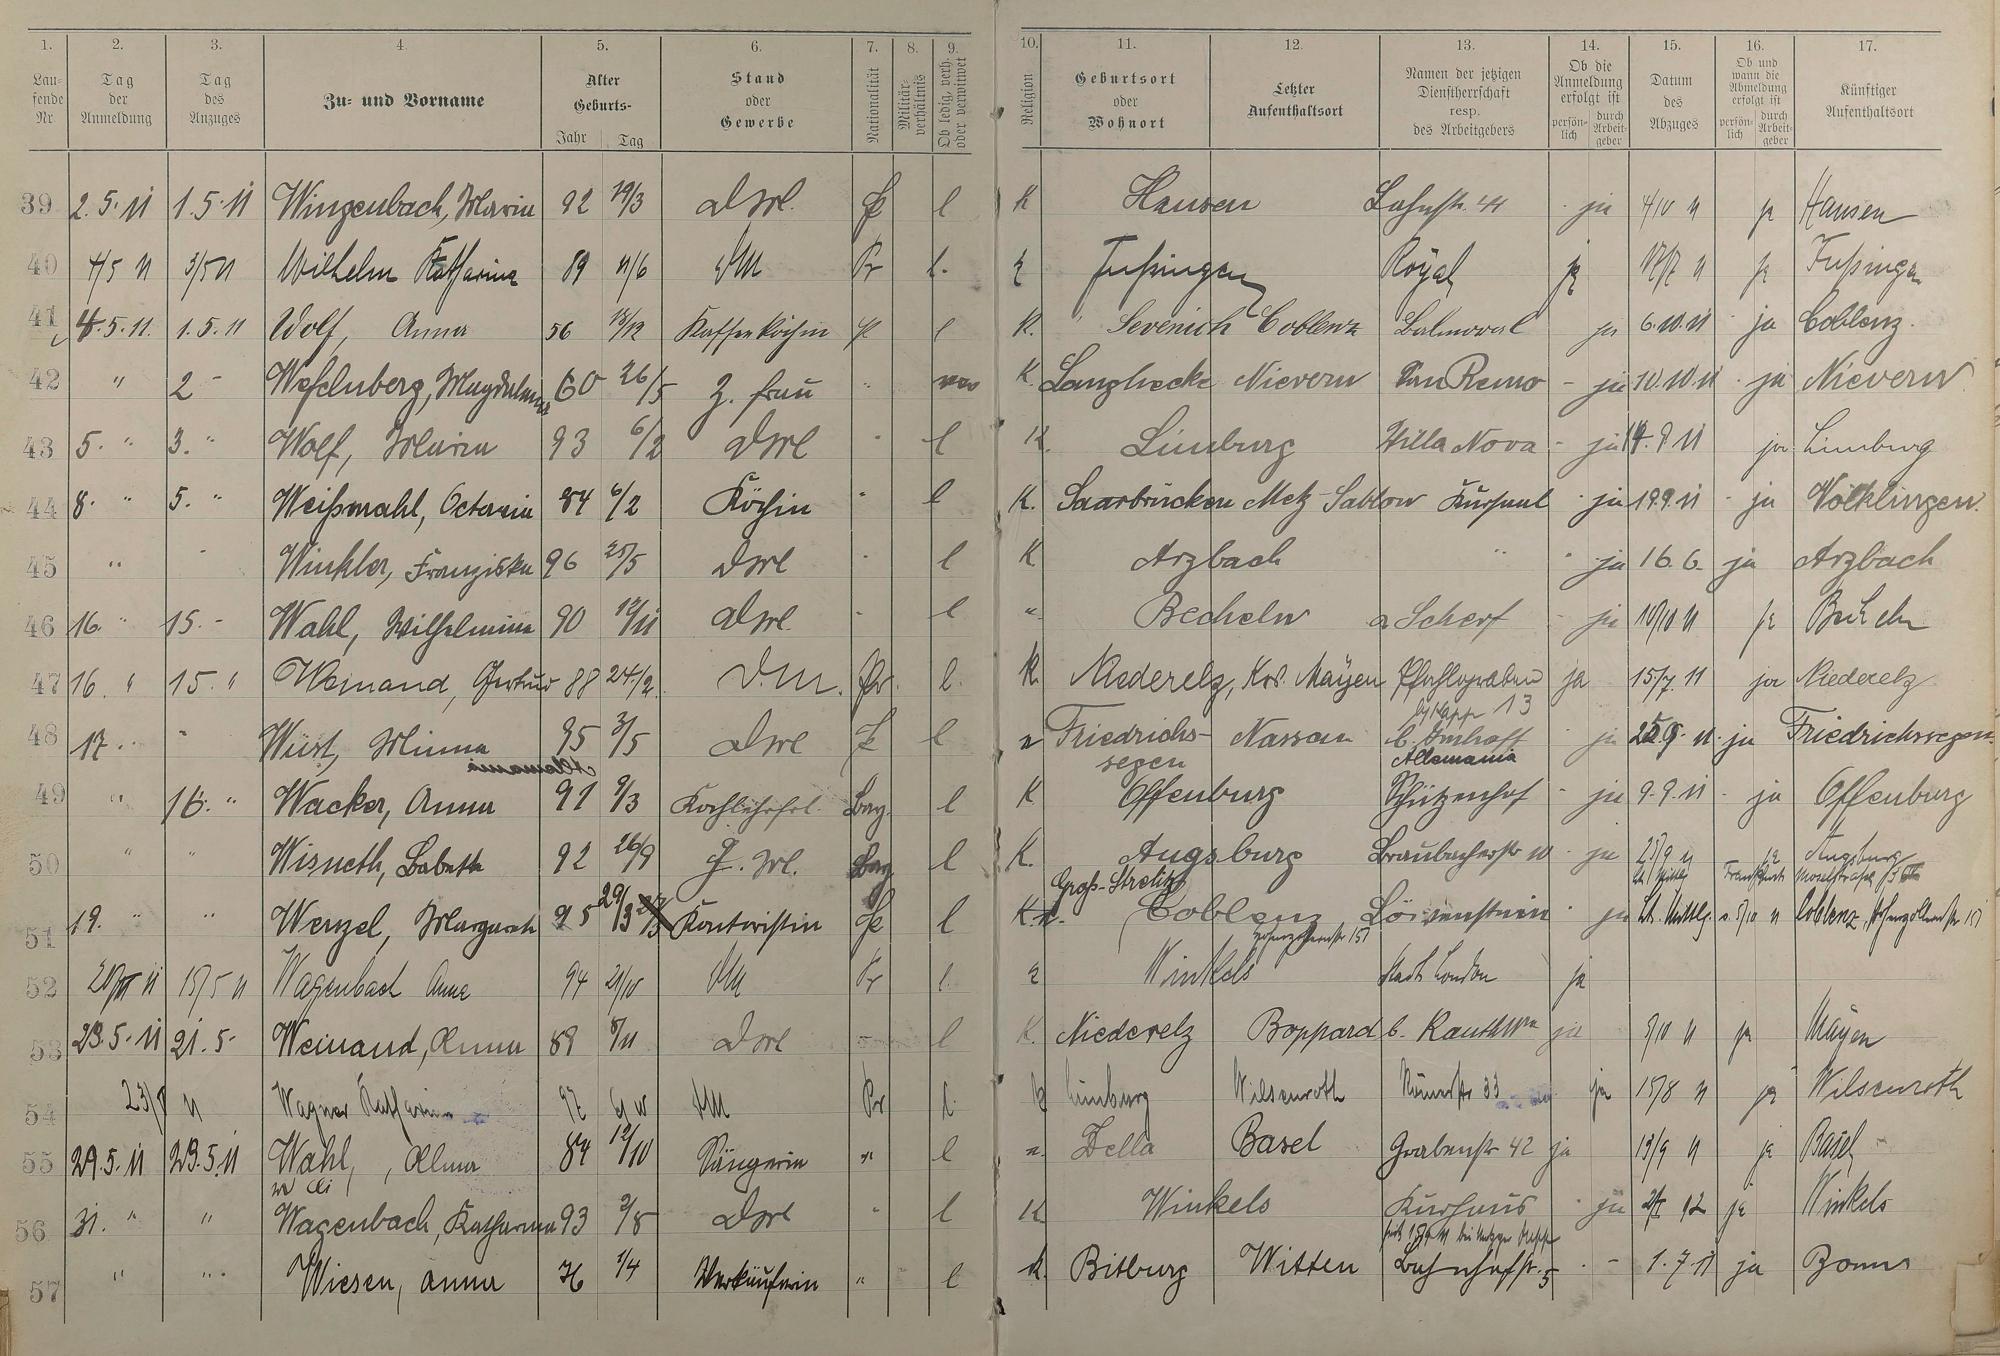 1. 2. 3. 4. 5. 6. 7. 8. 9. 10. 11. 12. 13. 14. 15. 16. 17.
Lau-fende Nr Tag der Anmeldung Tag des Anzuges Zu- und Vorname Alter Geburts- Jahr Tag Stand oder Gewerbe Nationalität Militär-verhältnis Ob ledig, verh. oder verwitwet Religion Geburtsort oder Wohnort Letzter Aufenthaltsort Namen der jetzigen Dienstherrschaft resp. des Arbeitgebers Ob die Anmeldung erfolgt ist persön-lich durch Arbeit-geber Datum des Abzuges Ob und wann die Abmeldung erfolgt ist persön-lich durch Arbeit-geber Künftiger Aufenthaltsort
39 2.5.11 1.5.11 Wingenbach, Maria 92 19/3 l K Hausen Lahnstr. 44 ja 4/10 11 ja Hausen
40 4/5 11 3/5 11 Wilhelm Katharina 89 11/6 DM Pr l. Fußingen Royal ja 17/7 11 ja Fußingen
41 4.5.11. 1.5.11 Wolf, Anna 56 18/12 Kaffeeköchin l K. Sevenich Coblenz Balmoral ja 6.10.11 ja Coblenz.
42 " 2 - 60 26/5 frau " K. Langhecke Nievern San Remo - ja 10.10.11 ja Nievern
43 5. " 3. " Wolf, Maria 93 6/2 " l K. Limburg Villa Nova - ja 8 11 ja Limburg
44 8. " 5. " Weißmahl, Octavia 84 6/2 Köchin " l K. Saarbrücken Metz-Sablow Kursaal ja 19.9.11 ja Völklingen.
45 " - Winkler, Franziska 96 25/5 - l K Arzbach " " ja 16.6. ja Arzbach
46 16. " 15. - Wahl, Wilhelmina 90 12/11 - l " Becheln a Scherf - ja 10/10 11 ja Becheln
47 16. " 15. " Weinand, Gertrud 88 24/2. D.M. Pr. l. K. Niederelz, Krs. Mayen Pfahlgraben 13 ja 15/7. 11 ja Niederelz
48 17. " Wüst, Minna 95 3/5 l Friedrichs-segen Nassau b. Imhoff Allemania ja 11 ja Friedrichssegen.
49 " 16. " Wacker, Anna 91 9/3 Bay. l K Offenburg Schützenhof - ja 9.9.11 - ja Offenburg
50 " " Wisneth, Babette 92 26/9 Bay l K. Augsburg Braubacherstr 10 - ja 23/9 11 ja Augsburg
Groß-Strelitz
51 19. " " Wenzel, Margarete 95 29/3 Kontoristin l K. Coblenz Löwenstein ja Coblenz, Hohenzollernstr 157
Hohenzollernstr 157
52 15/5 11 Wagenbach Anna 94 21/10 DM Pr l. Winkels Stadt London ja
53 23.5.11 21.5- Weinand, Anna 89 8/11 l K. Niederelz Boppard ja 11 ja Mayen
54 11 Wagner Katharina DM Pr l. K Limburg Wilsenroth Römerstr 33 ja 15/8 11 ja Wilsenroth
55 29.5.11 23.5.11 Wahl, Alma 12/10 Sängerin " l Zella Basel Grabenstr 42 ja 19/9 11 ja Basel
56 31. " " Wagenbach, Katharina 93 " l K Winkels Kurhaus ja 12 ja Winkels
57 " " Wiesen, Anna 76 1/4 Verkäuferin " l K. Bitburg Witten Bahnhofstr. 5 - 1.7.11 ja Bonn